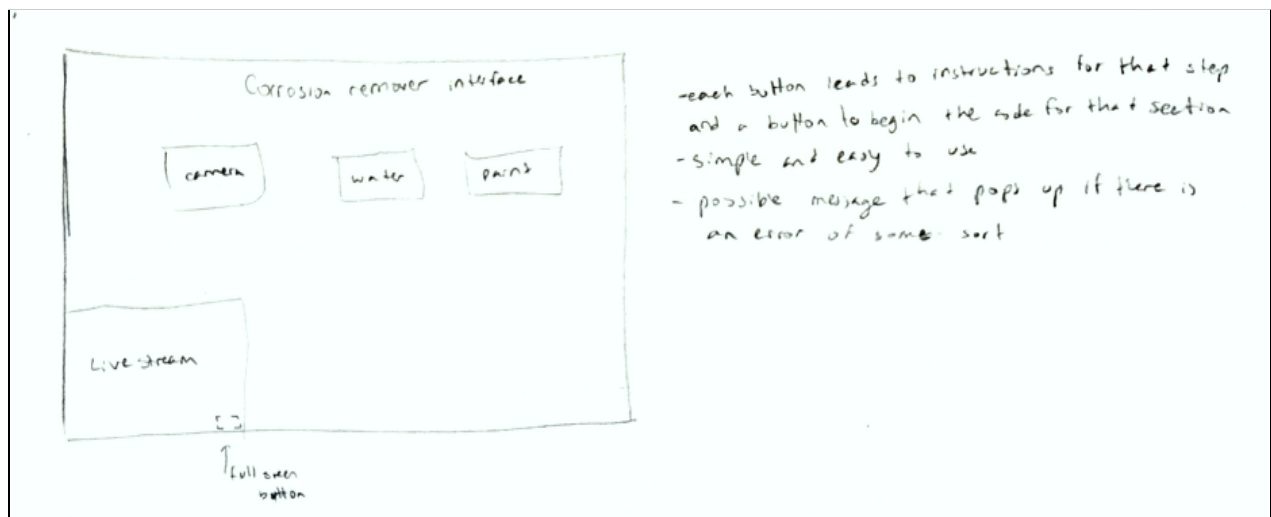 Corrosion remover interface
camera
water
paint
Live stream
full sreen
button
-each button leads to instructions for that step
and a button to begin the code for that section
-simple and easy to use
- possible message that pops up if there is
an error of some sort